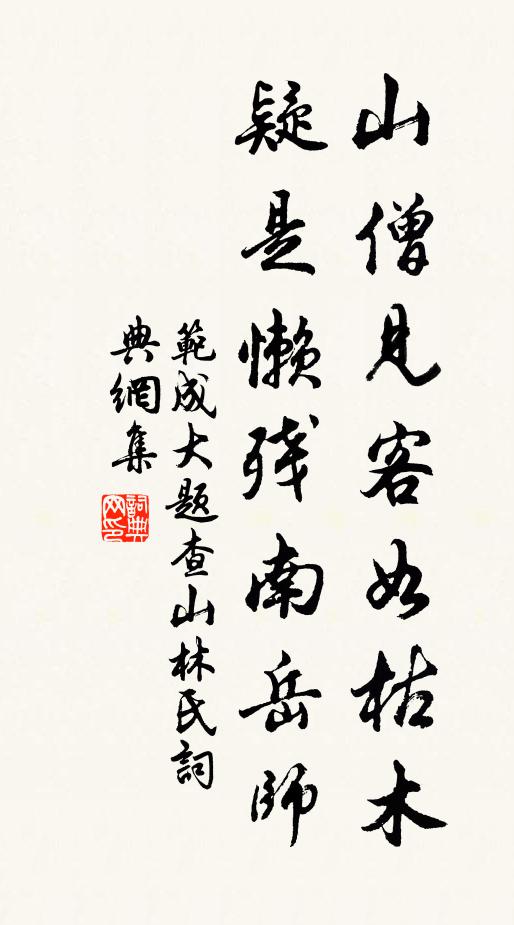 山僧見客如枯木
疑是懶残南岳師
範成大题查山林民詞
典網集
詞典
网印